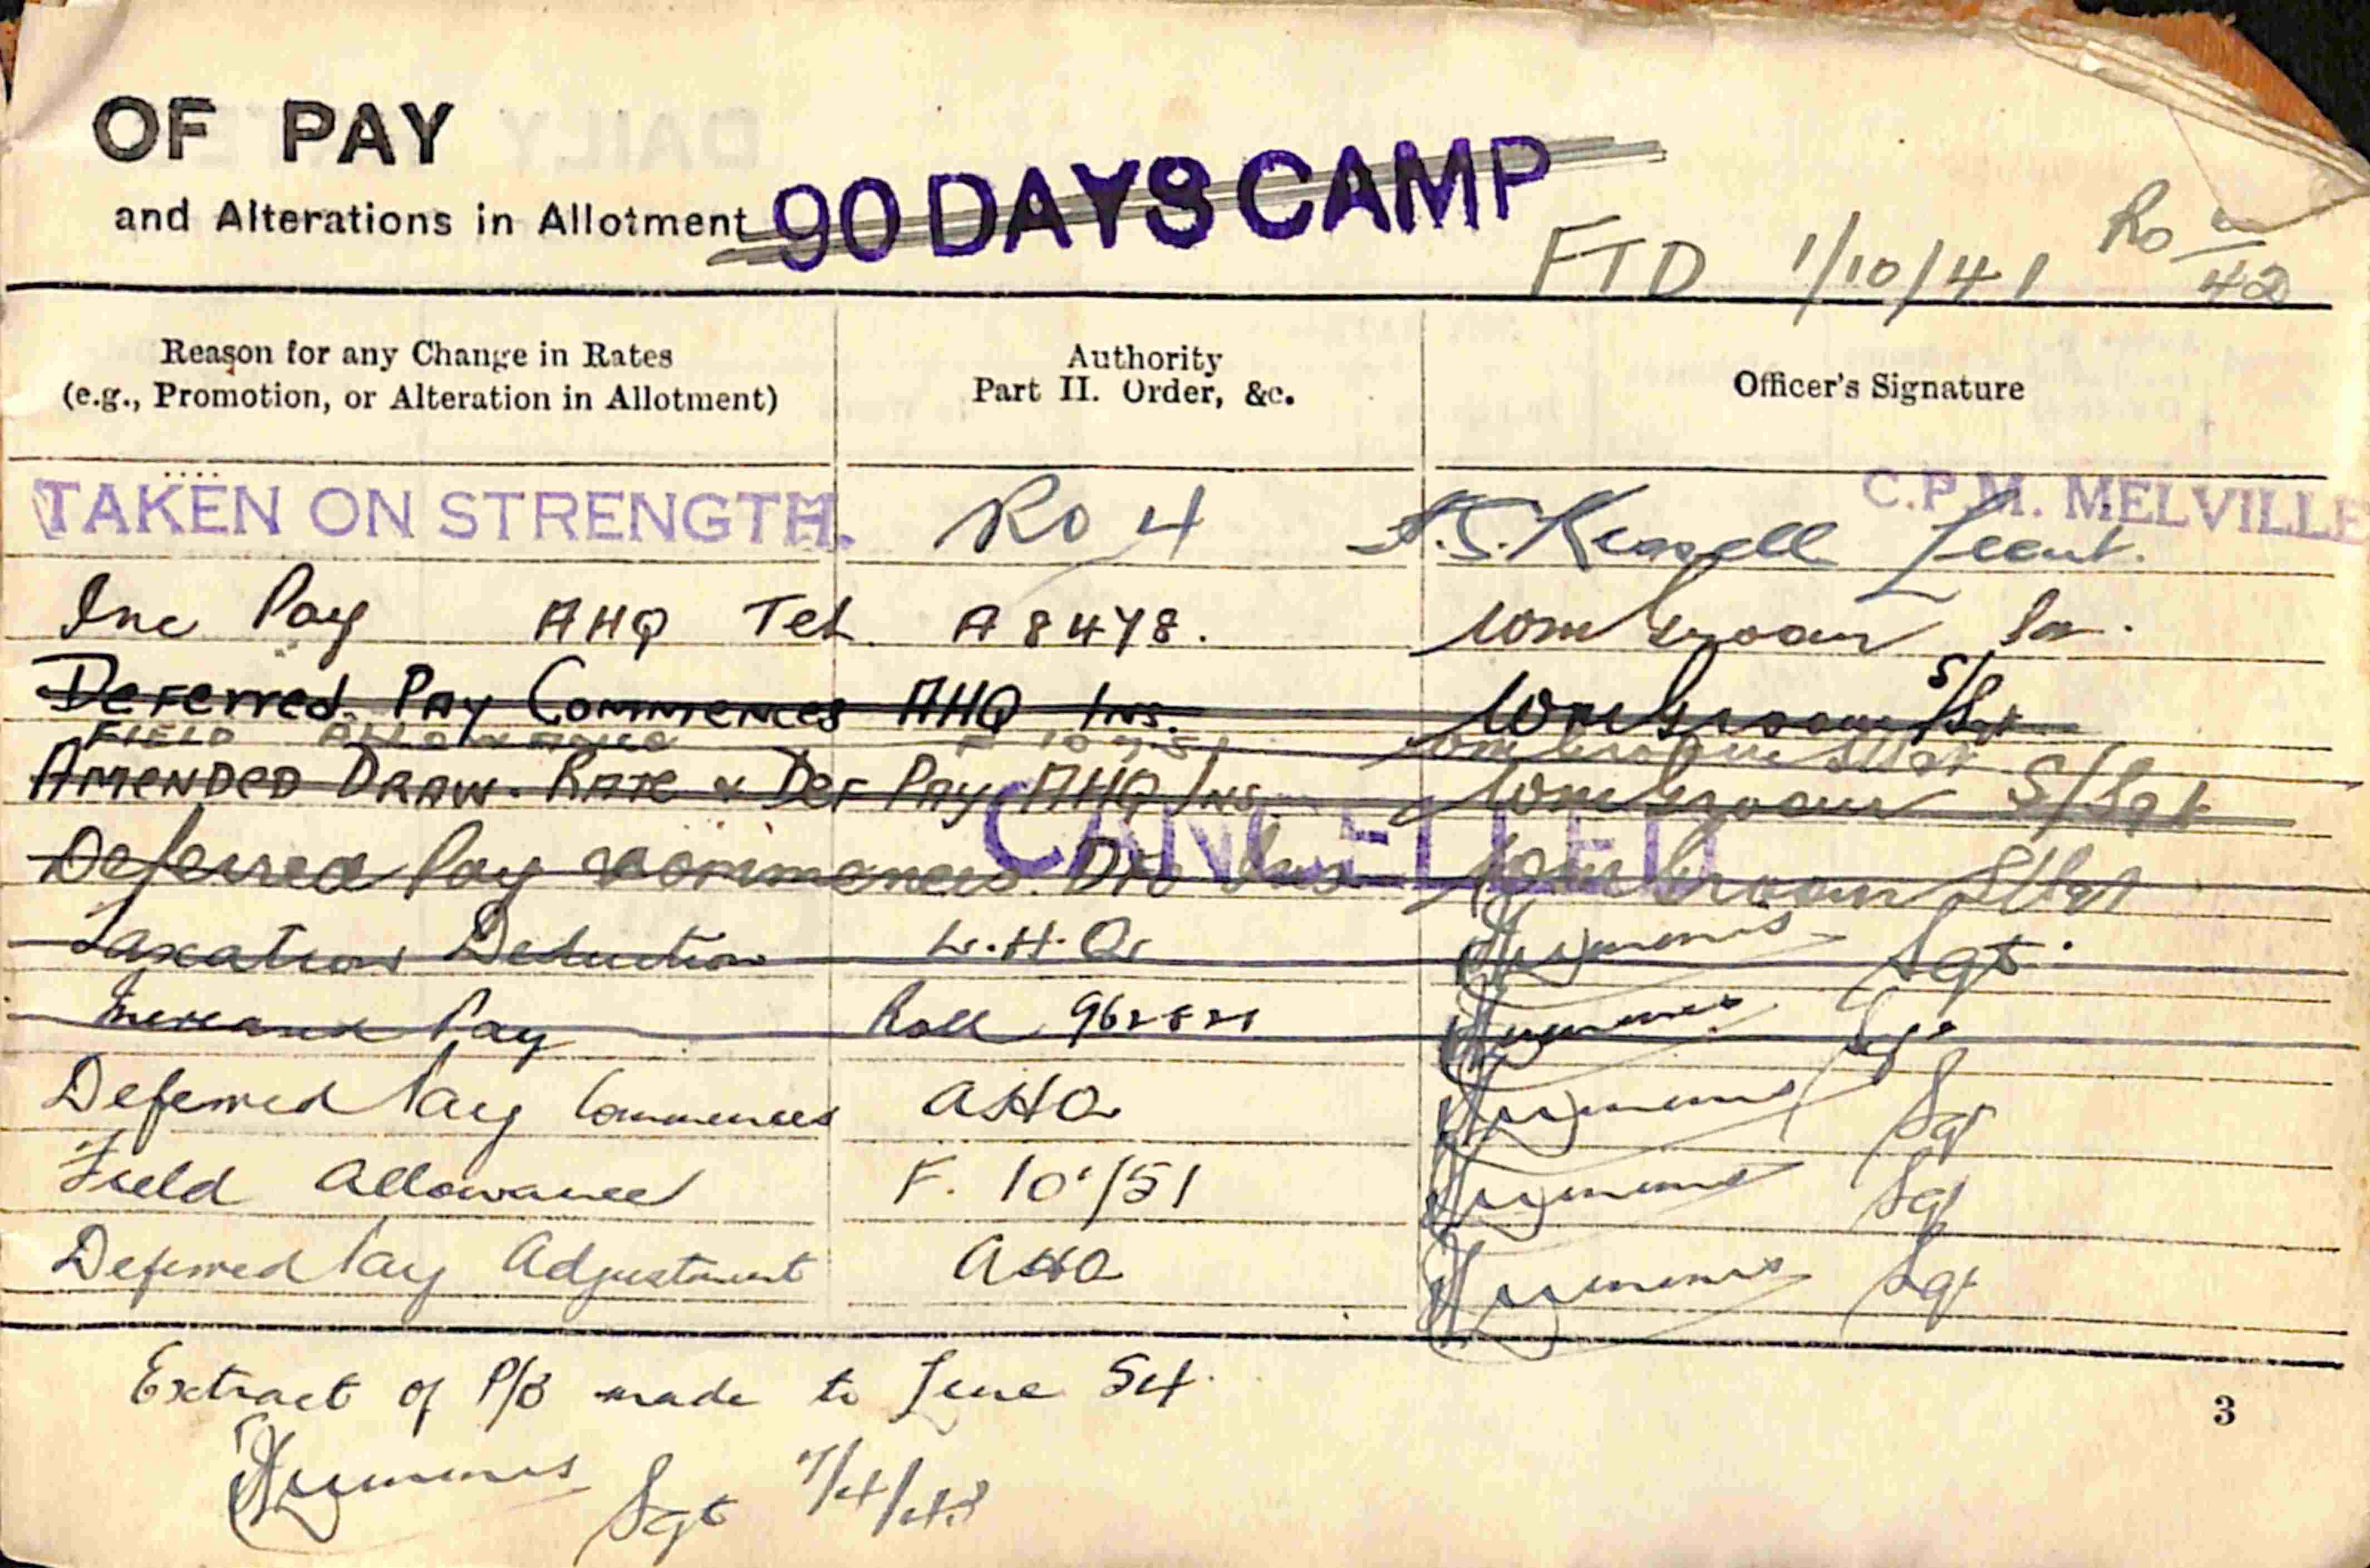 OF PAY
and Alterations in Allotment 90 DAYS CAMP
FTD 1/10/41 Ro 42
Reason for any Change in Rates
(e.g., Promotion, or Alteration in Allotment)
Authority
Part II. Order, &c.
Officer's Signature
C.P.M. MELVILLE
TAKEN ON STRENGTH. Ro 4 Lieut.
Inc Pay AHQ Tel A 8478.
Deferred Pay Commences AHQ Ins. S/Sgt
FIELD ALLOWANCE S/Sgt
AMENDED DRAW. RATE & Def Pay AHQ Ins. S/Sgt
CANCELLED
Deferred Pay commences. Ins S/Sgt
Taxation Deduction L.H.Q. Sgt.
Increase Pay Roll Sgt
Deferred Pay Commences AHQ Sgt
Field Allowance F. 10/51 Sgt
Deferred Pay Adjustment AHQ Sgt
Extract of P/B made to June Set.
3
Sgt